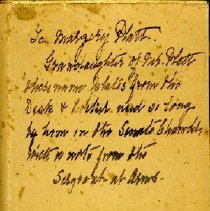 To Margery Platt.
Granddaughter of Mr. Platt
these name plates from the
Desk & used so long
by him in the Senate Chamber,
with a note from the
Sergeant at Arms.